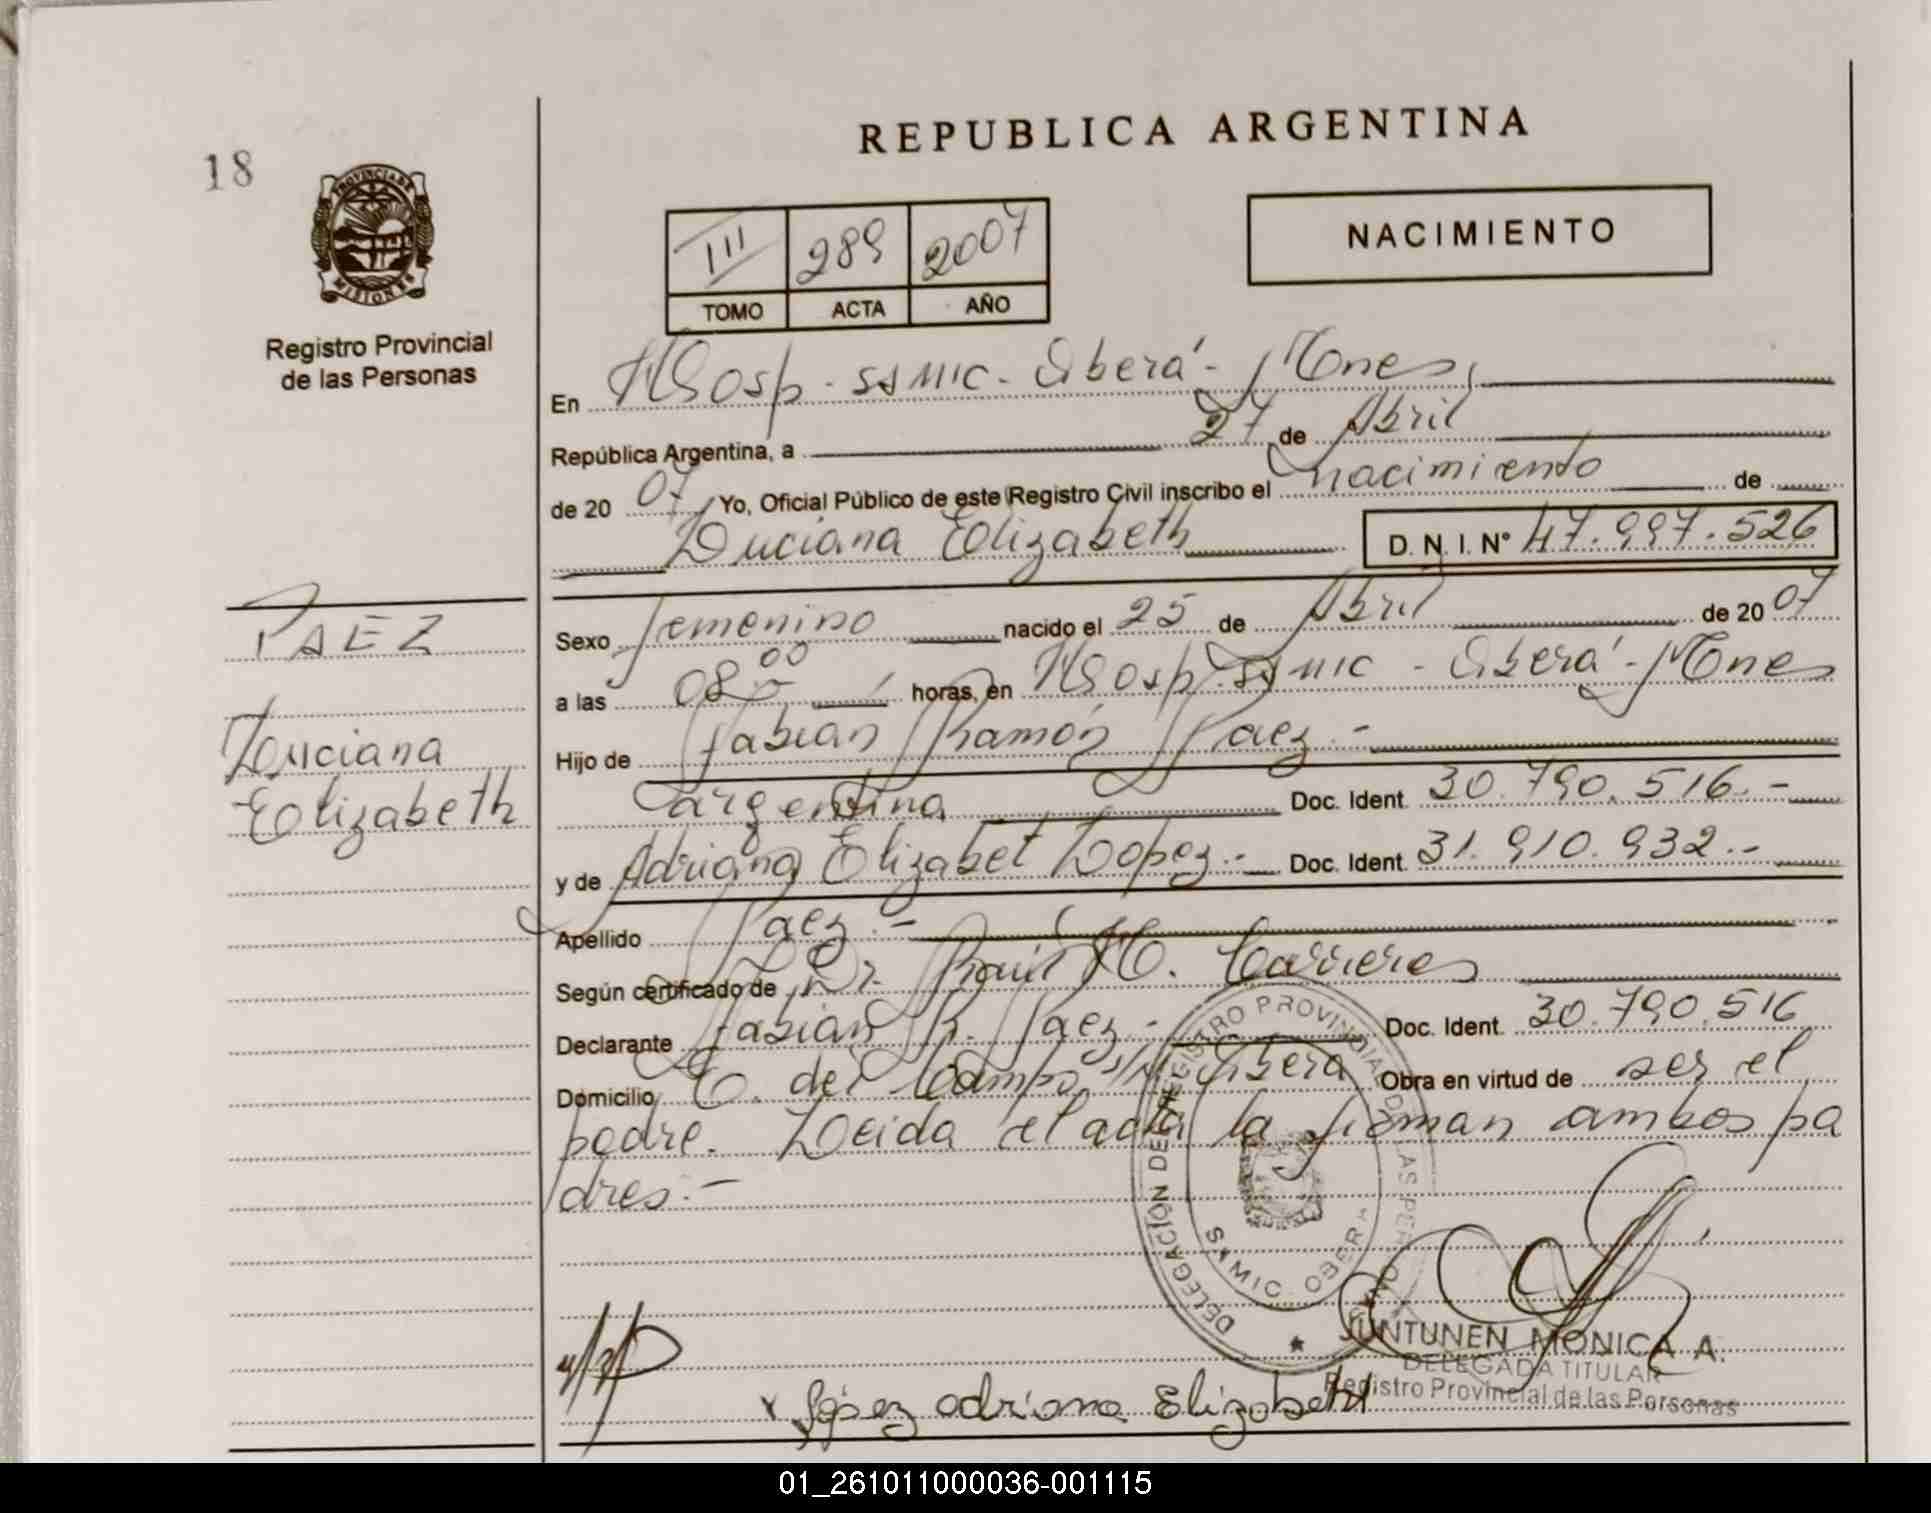 18
REPUBLICA ARGENTINA
PROVINCIA DE
MISIONES
Registro Provincial
de las Personas
III 289 2007
TOMO ACTA AÑO
NACIMIENTO
En Hosp. SAMIC - Oberá - Mnes,
República Argentina, a 27 de Abril
de 20 07 Yo, Oficial Público de este Registro Civil inscribo el nacimiento de
Luciana Elizabeth D. N. I. N° 47.997.526
PAEZ
Luciana
Elizabeth
Sexo femenino nacido el 25 de Abril de 20 07
a las 08 00 horas, en Hosp. SAMIC - Oberá - Mnes
Hijo de Fabián Ramón Paez.-
argentina Doc. Ident. 30.790.516.-
y de Adriana Elizabet Lopez.- Doc. Ident. 31.910.932.-
Apellido Paez.-
Según certificado de Dr. Raúl H. Carreres
Declarante Fabián R. Paez.- Doc. Ident. 30.790.516
Domicilio C. del Campo s/n Oberá Obra en virtud de ser el
padre. Leída el acta la firman ambos pa
dres.-
DELEGACIÓN DEL REGISTRO PROVINCIAL DE LAS PERSONAS
SAMIC OBERA
JUNTUNEN MONICA A.
DELEGADA TITULAR
Registro Provincial de las Personas
x López Adriana Elizabeth
01_261011000036-001115